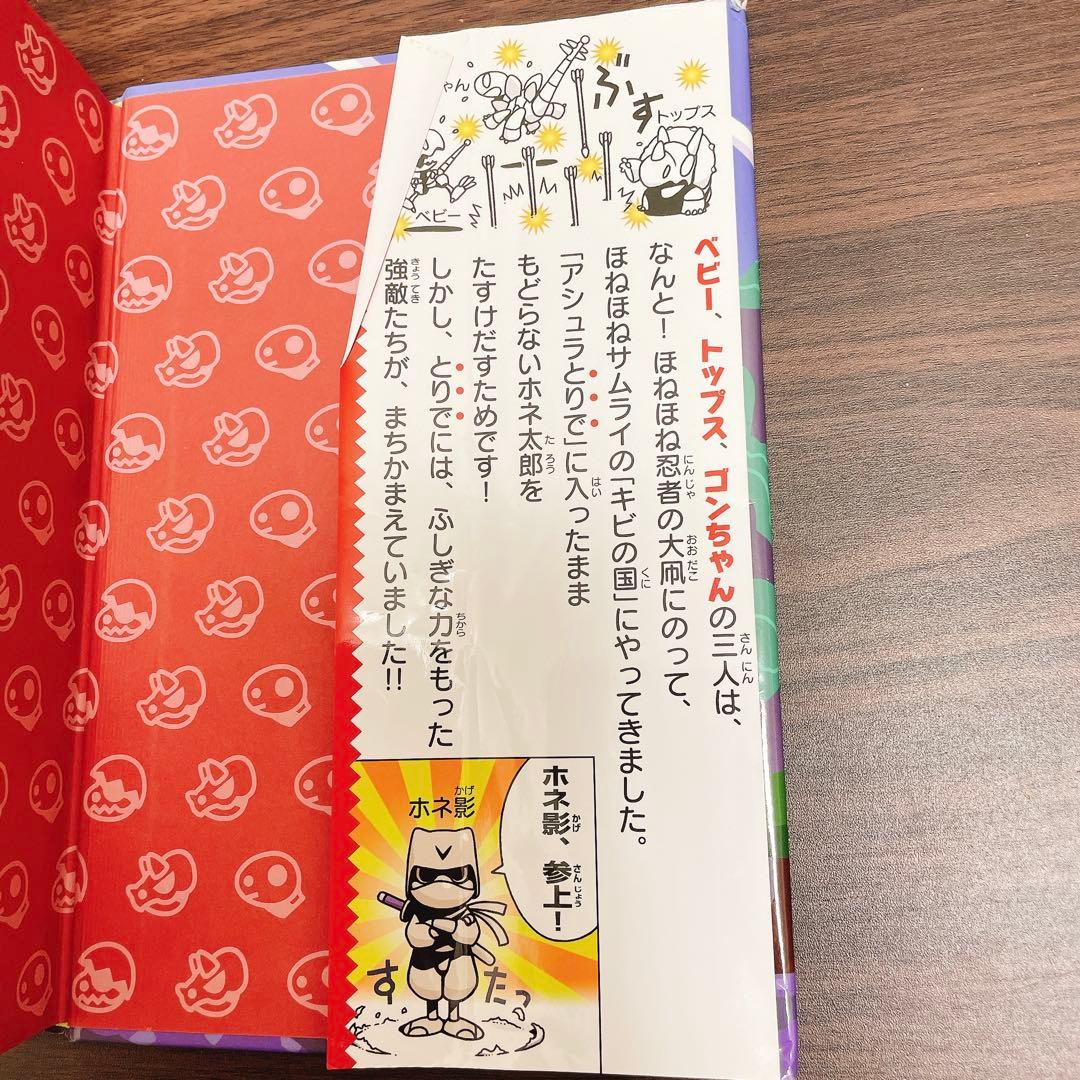 ゃん
ぶす
トップス
ベビー
ベビー、トップス、ゴンちゃんの三人は、
なんと！ほねほね忍者の大凧にのって、
ほねほねサムライの「キビの国」にやってきました。
「アシュラとりで」に入ったまま
もどらないホネ太郎を
たすけだすためです！
しかし、とりでには、ふしぎな力をもった
強敵たちが、まちかまえていました!!
ホネ影、参上！
ホネ影
すたっ